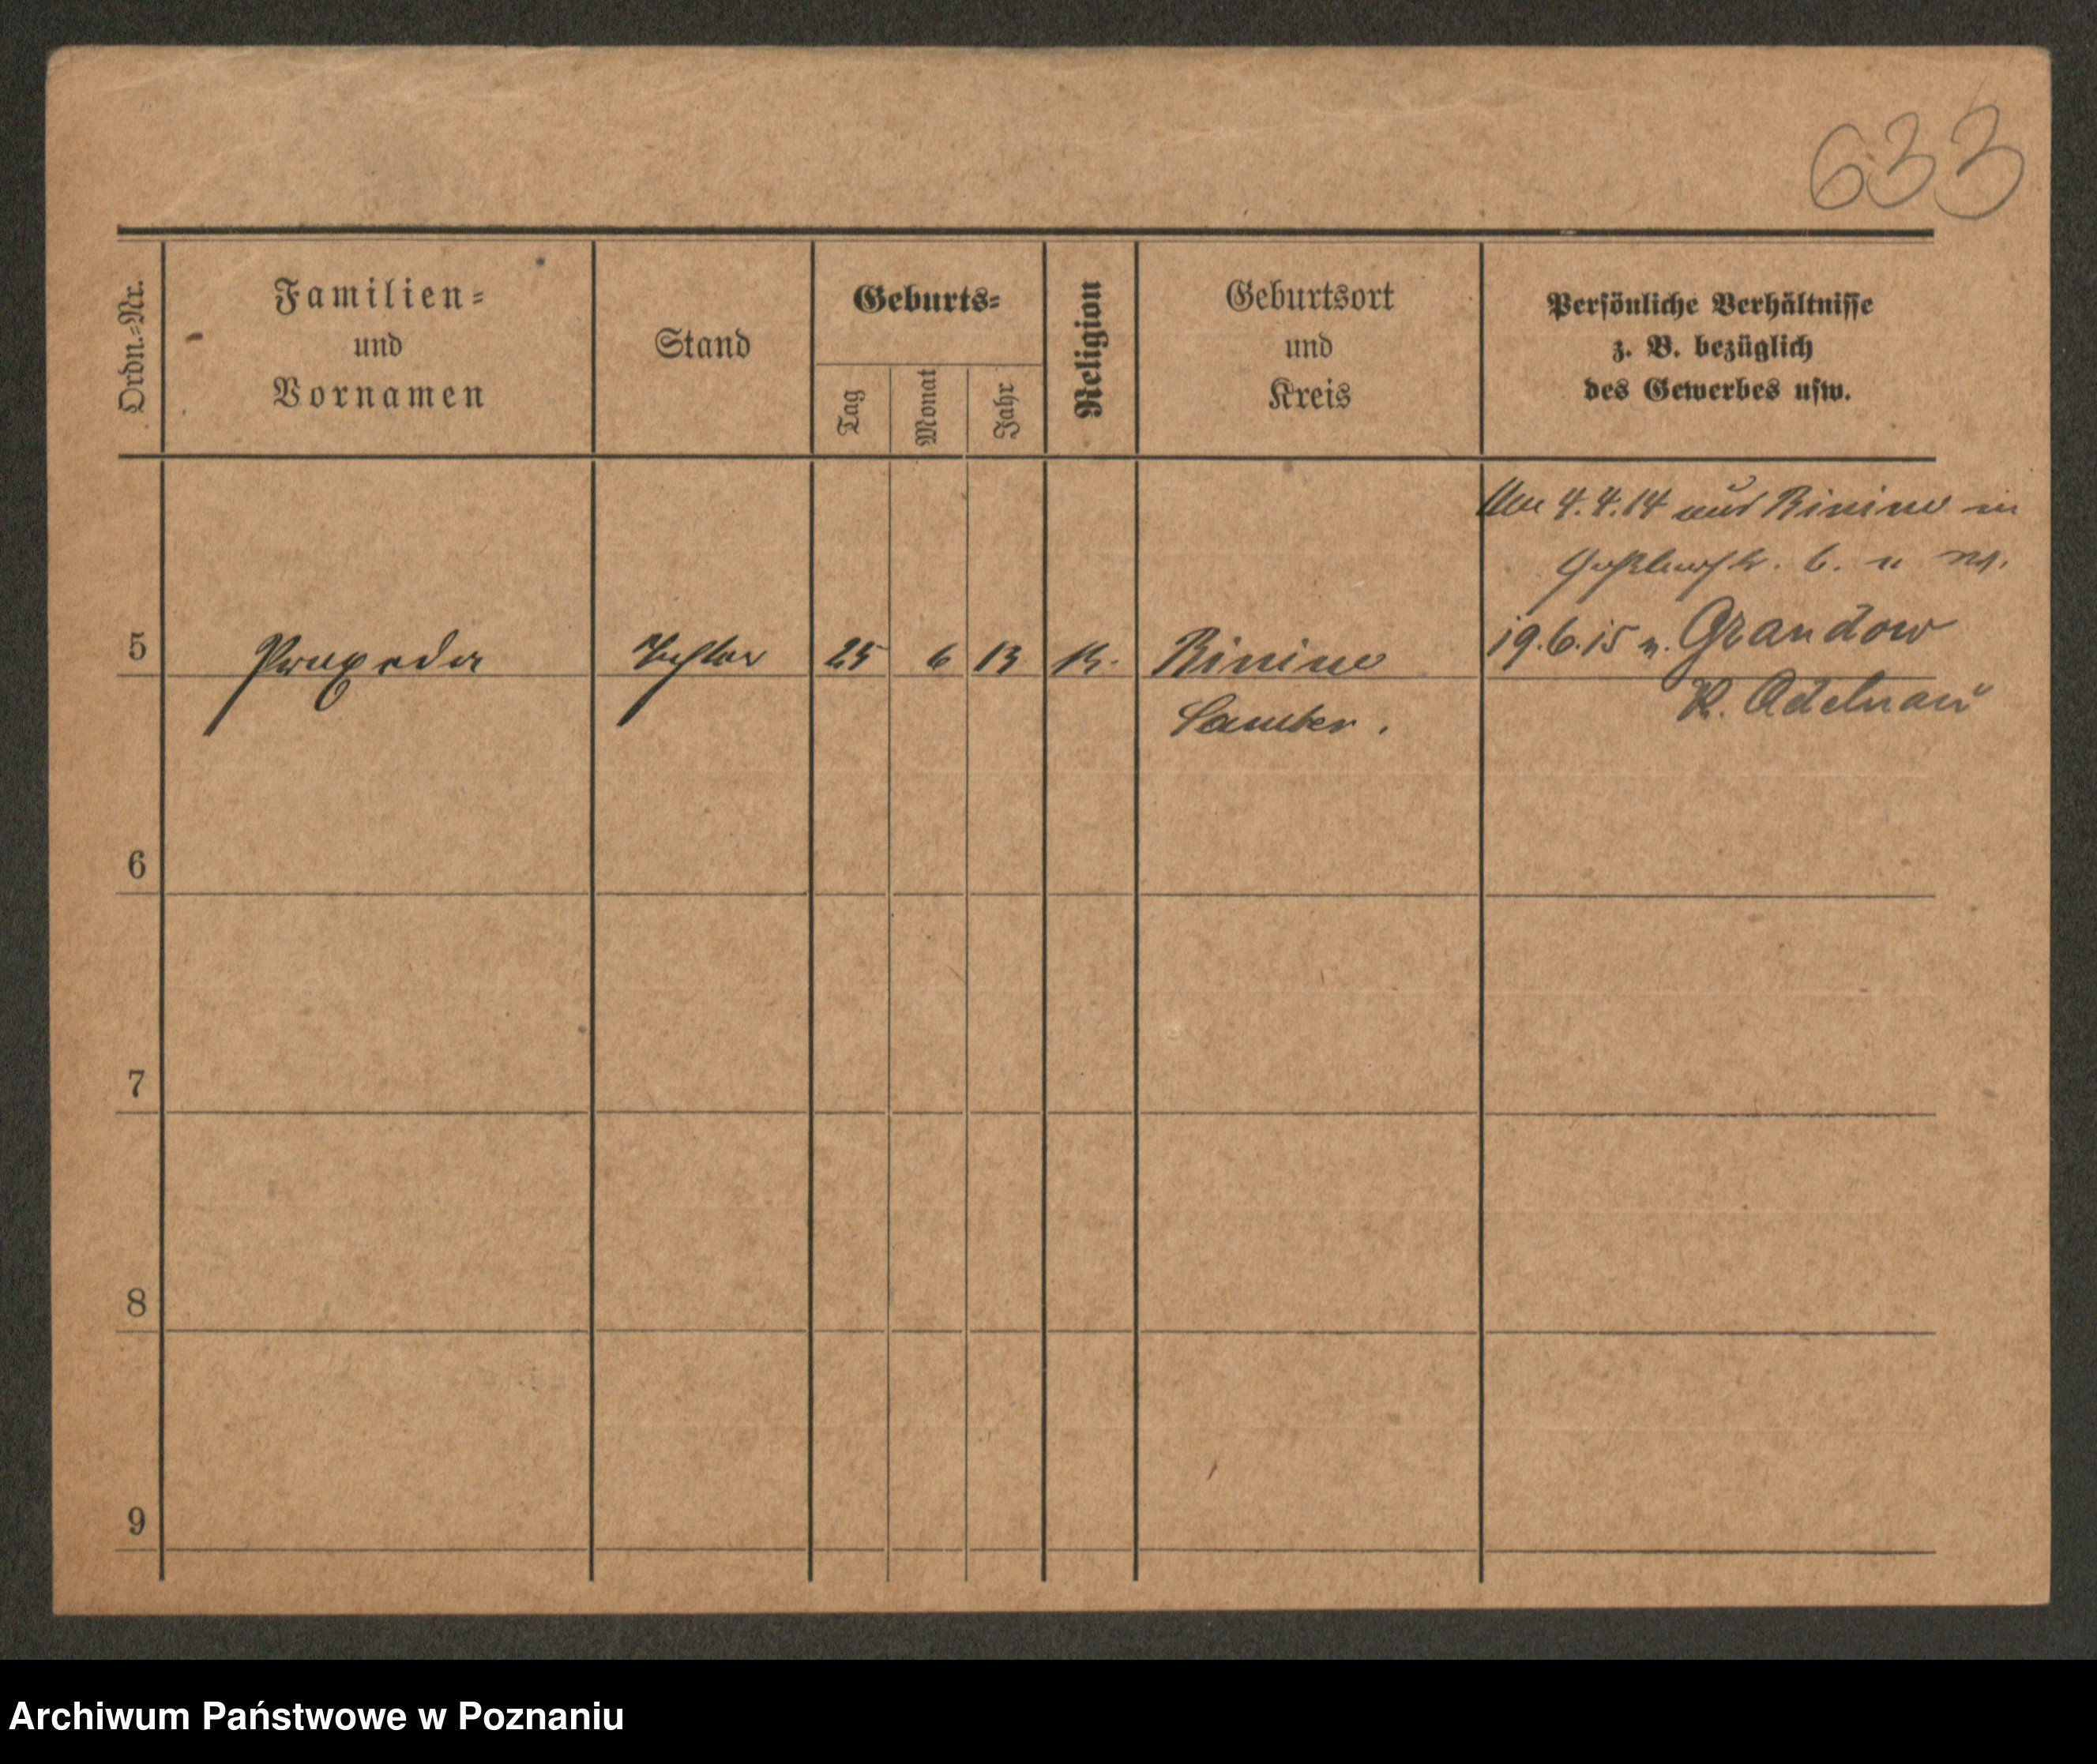 633
Ordn.-Nr.
Familien-
und
Vornamen
Stand
Geburts-
Tag
Monat
Jahr
Religion
Geburtsort
und
Kreis
Persönliche Verhältnisse
z. B. bezüglich
des Gewerbes usw.
4.4.14 aus Binino in
19.6.15 n. Grandow
K. Adelnau
5 Praxeda Tochter 25 6 13 K. Binino
Samter.
6
7
8
9
Archiwum Państwowe w Poznaniu